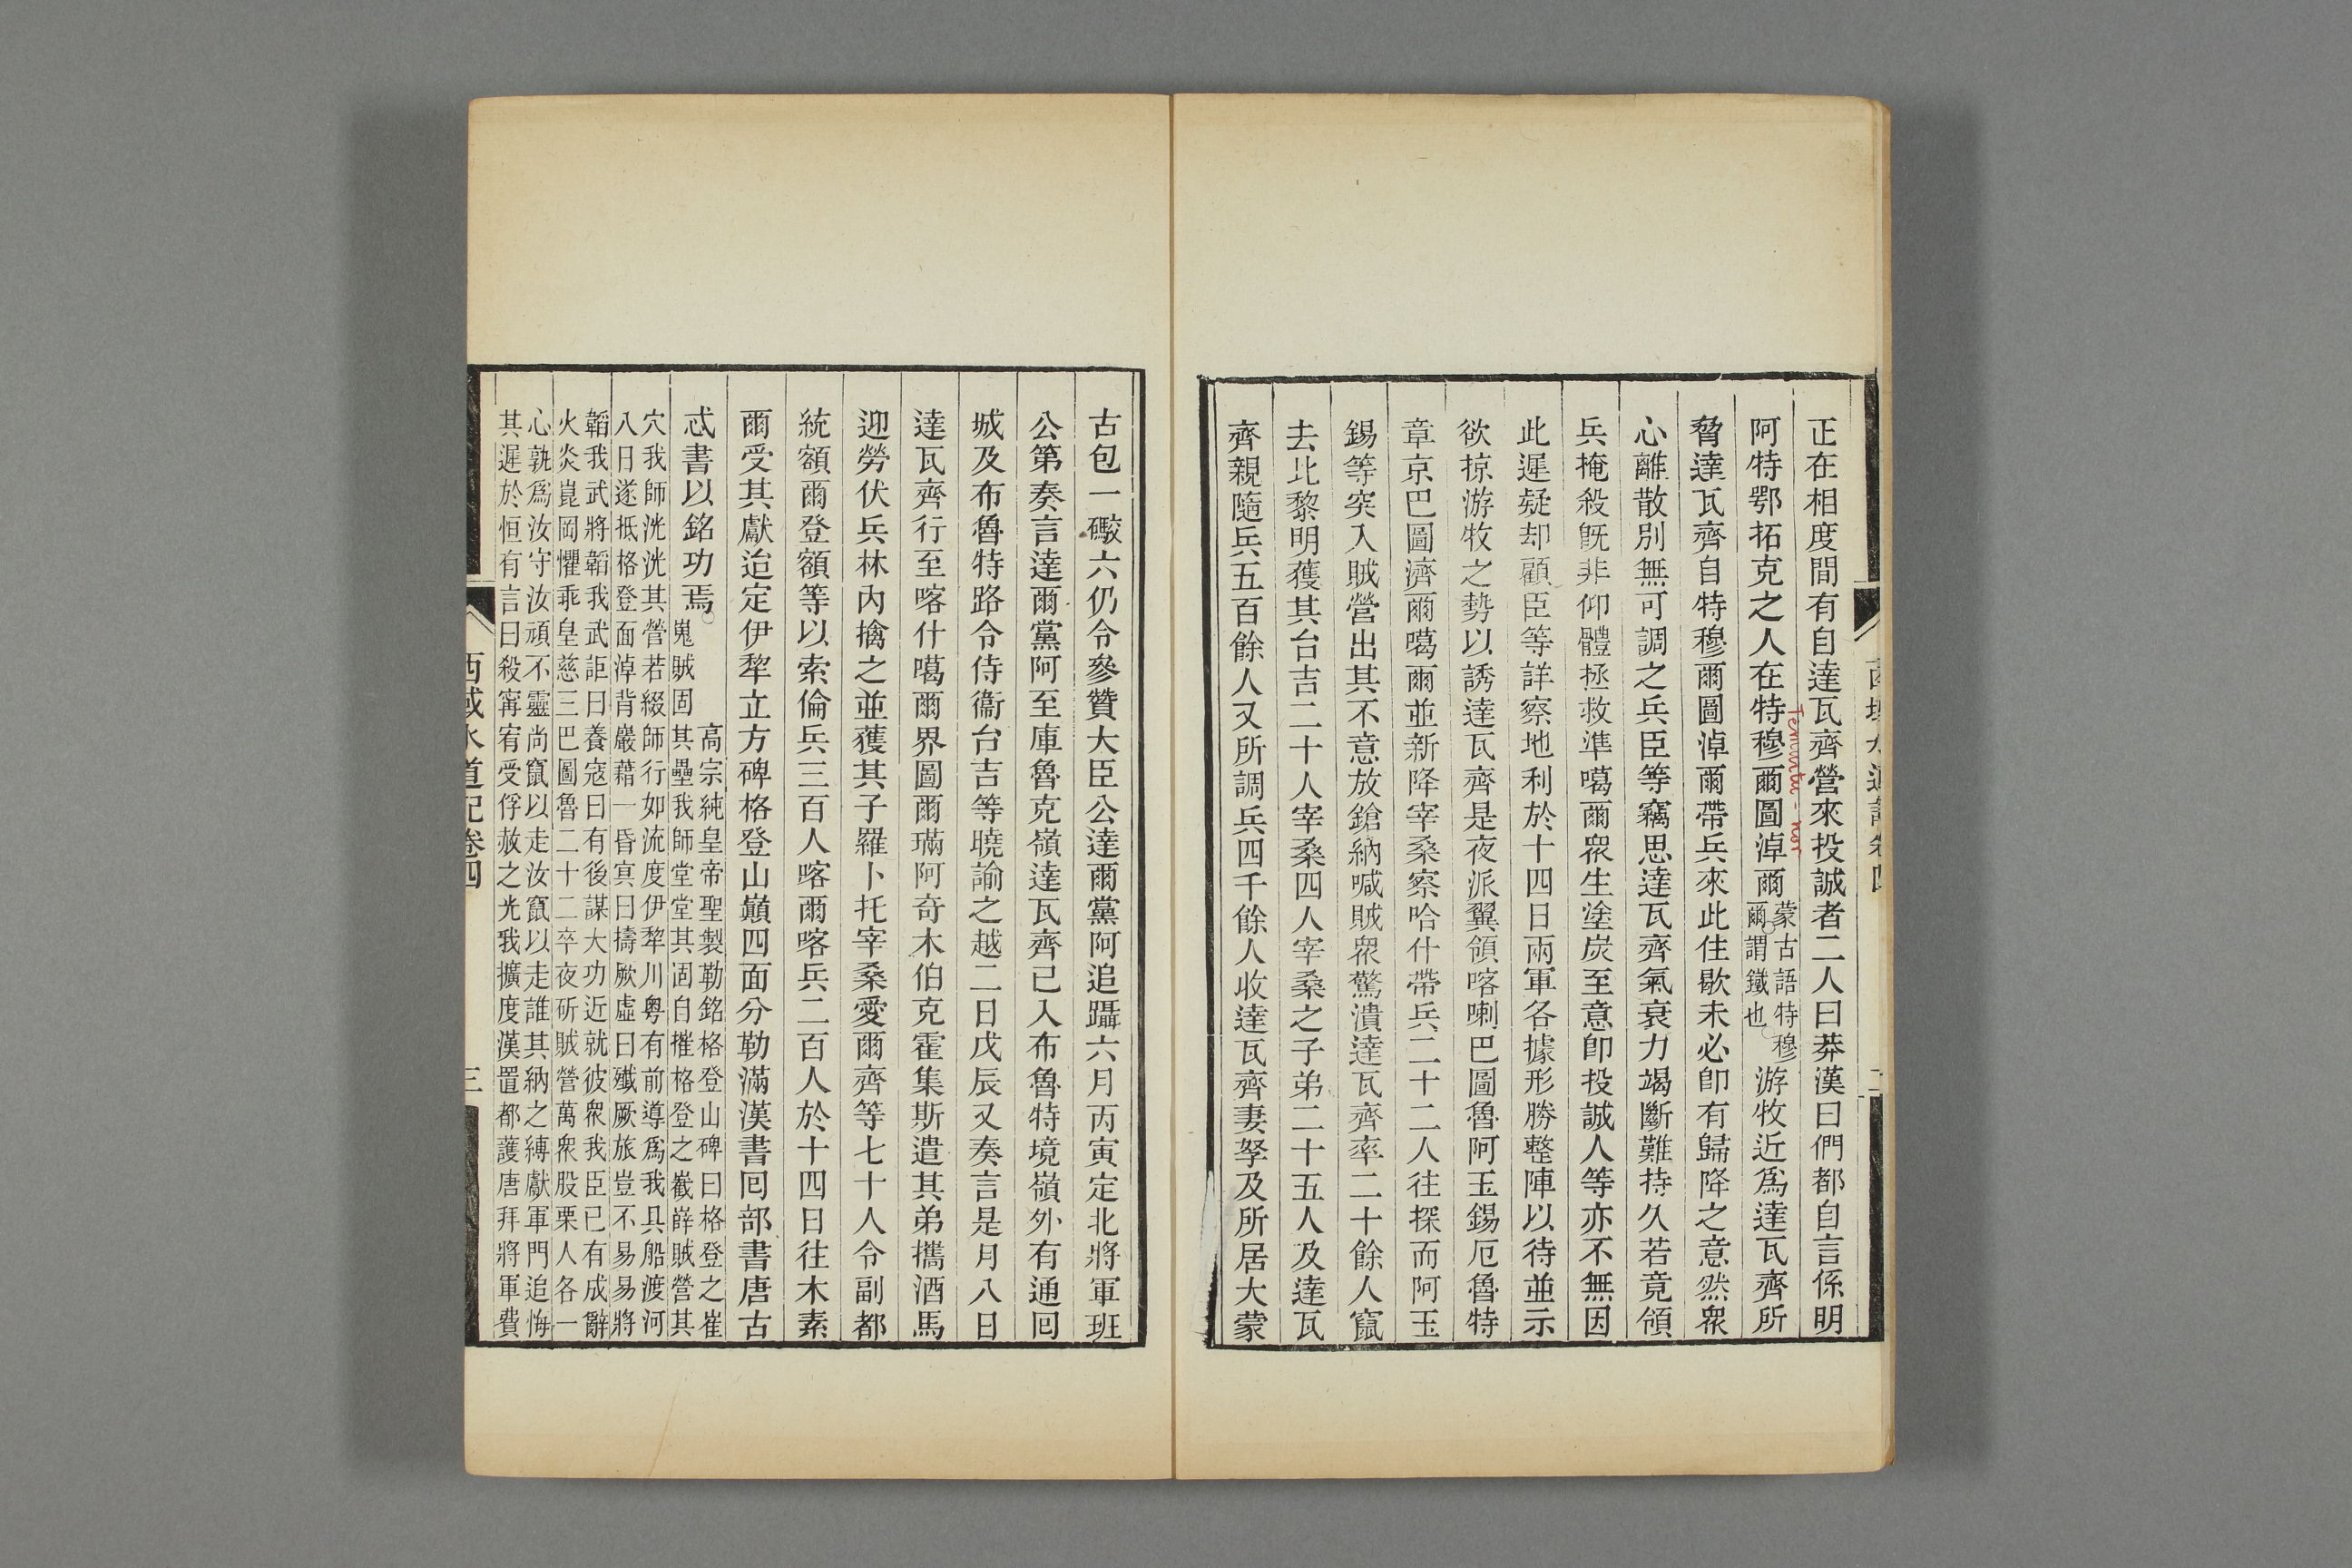 正在相度間有自達瓦齊營來投誠者二人曰莽漢曰們都自言係明
阿特鄂拓克之人在特穆爾圖淖爾蒙古語特穆爾謂鐵也游牧近爲達瓦齊所
Temurtu-nor
脅達瓦齊自特穆爾圖淖爾帶兵來此住歇未必卽有歸降之意然衆
心離散別無可調之兵臣等竊思達瓦齊氣衰力竭斷難持久若竟領
兵掩殺旣非仰體拯救準噶爾衆生塗炭至意卽投誠人等亦不無因
此遲疑却顧臣等詳察地利於十四日兩軍各據形勝整陣以待並示
欲掠游牧之勢以誘達瓦齊是夜派翼領喀喇巴圖魯阿玉錫厄魯特
章京巴圖濟爾噶爾並新降宰桑察哈什帶兵二十二人往探而阿玉
錫等突入賊營出其不意放鎗納喊賊衆驚潰達瓦齊率二十餘人竄
去比黎明獲其台吉二十人宰桑四人宰桑之子弟二十五人及達瓦
齊親隨兵五百餘人又所調兵四千餘人收達瓦齊妻孥及所居大蒙
古包一礮六仍令參贊大臣公達爾黨阿追躡六月丙寅定北將軍班
公第奏言達爾黨阿至庫魯克嶺達瓦齊已入布魯特境嶺外有通回
城及布魯特路令侍衞台吉等曉諭之越二日戊辰又奏言是月八日
達瓦齊行至喀什噶爾界圖爾璊阿奇木伯克霍集斯遣其弟攜酒馬
迎勞伏兵林內擒之並獲其子羅卜托宰桑愛爾齊等七十人令副都
統額爾登額等以索倫兵三百人喀爾喀兵二百人於十四日往木素
爾受其獻迨定伊犂立方碑格登山巔四面分勒滿漢書回部書唐古
忒書以銘功焉高宗純皇帝聖製勒銘格登山碑曰格登之崔
嵬賊固其壘我師堂堂其固自摧格登之嶻嶭賊營其
穴我師洸洸其營若綴師行如流度伊犂川粤有前導爲我具船渡河
八日遂抵格登面淖背巖藉一昏冥曰擣厥虛曰殲厥旅豈不易易將
韜我武將韜我武詎曰養寇曰有後謀大功近就彼衆我臣已有成辭
火炎崑岡懼乖皇慈三巴圖魯二十二卒夜斫賊營萬衆股栗人各一
心孰爲汝守汝頑不靈尚竄以走汝竄以走誰其納之縛獻軍門追悔
其遲於恒有言曰殺寗宥受俘赦之光我擴度漢置都護唐拜將軍費
西域水道記卷四
三